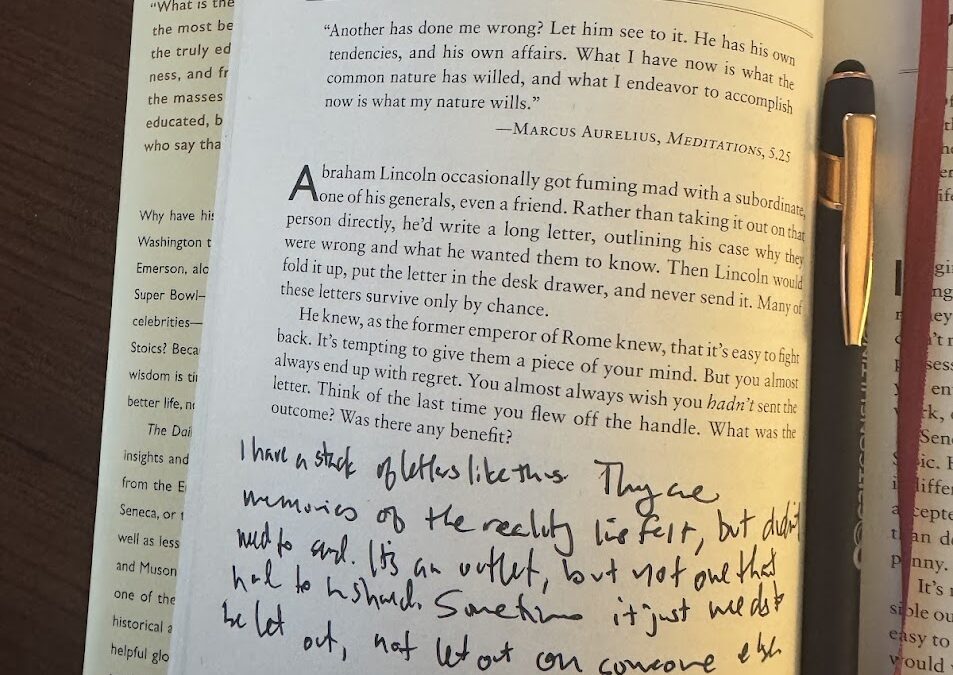 "What is the
the most be
the truly ed
ness, and fr
the masses
educated, b
who say tha
Why have his
Washington t
Emerson, alo
Super Bowl—
celebrities—
Stoics? Beca
wisdom is ti
better life, ne
The Dai
insights and
from the E
Seneca, or t
well as less
and Muson
one of the
historical a
helpful glo
"Another has done me wrong? Let him see to it. He has his own
tendencies, and his own affairs. What I have now is what the
common nature has willed, and what I endeavor to accomplish
now is what my nature wills."
—MARCUS AURELIUS, MEDITATIONS, 5.25
Abraham Lincoln occasionally got fuming mad with a subordinate,
one of his generals, even a friend. Rather than taking it out on that
person directly, he'd write a long letter, outlining his case why they
were wrong and what he wanted them to know. Then Lincoln would
fold it up, put the letter in the desk drawer, and never send it. Many of
these letters survive only by chance.
He knew, as the former emperor of Rome knew, that it's easy to fight
back. It's tempting to give them a piece of your mind. But you almost
always end up with regret. You almost always wish you hadn't sent the
letter. Think of the last time you flew off the handle. What was the
outcome? Was there any benefit?
I have a stack of letters like this. They are
memories of the reality I've felt, but didn't
need to send. It's an outlet, but not one that
had to be shared. Sometimes it just needs to
be let out, not let out on someone else